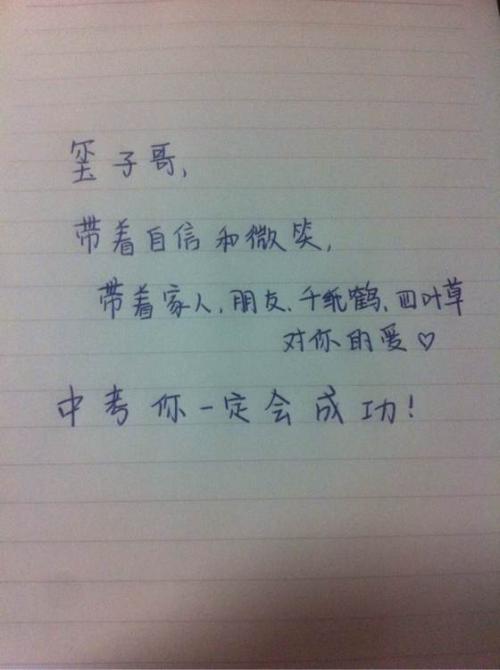 玺子哥,
带着自信和微笑,
带着家人、朋友、千纸鹤、四叶草
对你的爱♡
中考你一定会成功!